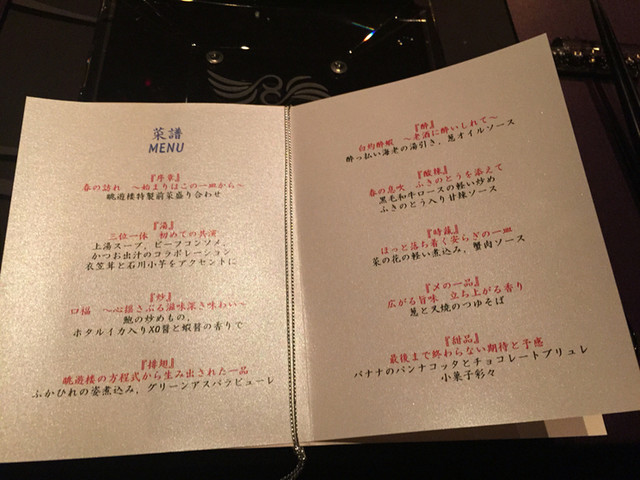 菜譜
MENU
『序章』
春の訪れ ～始まりはこの一皿から～
眺遊楼特製前菜盛り合わせ
『湯』
三位一体 初めての共演
上湯スープ、ビーフコンソメ、
かつお出汁のコラボレーション
衣笠茸と石川小芋をアクセントに
『炒』
口福 ～心揺さぶる滋味深き味わい～
鮑の炒めもの、
ホタルイカ入りXO醤と蝦醤の香りで
『排翅』
眺遊楼の方程式から生み出された一品
ふかひれの姿煮込み、グリーンアスパラピューレ
『酔』
白灼酔蝦 ～老酒に酔いしれて～
酔っ払い海老の湯引き、葱オイルソース
『酸辣』
春の息吹 ふきのとうを添えて
黒毛和牛ロースの軽い炒め
ふきのとう入り甘辣ソース
『時蔬』
ほっと落ち着く安らぎの一皿
菜の花の軽い煮込み、蟹肉ソース
『〆の一品』
広がる旨味 立ち上がる香り
葱と叉焼のつゆそば
『甜品』
最後まで終わらない期待と予感
バナナのパンナコッタとチョコレートブリュレ
小菓子彩々